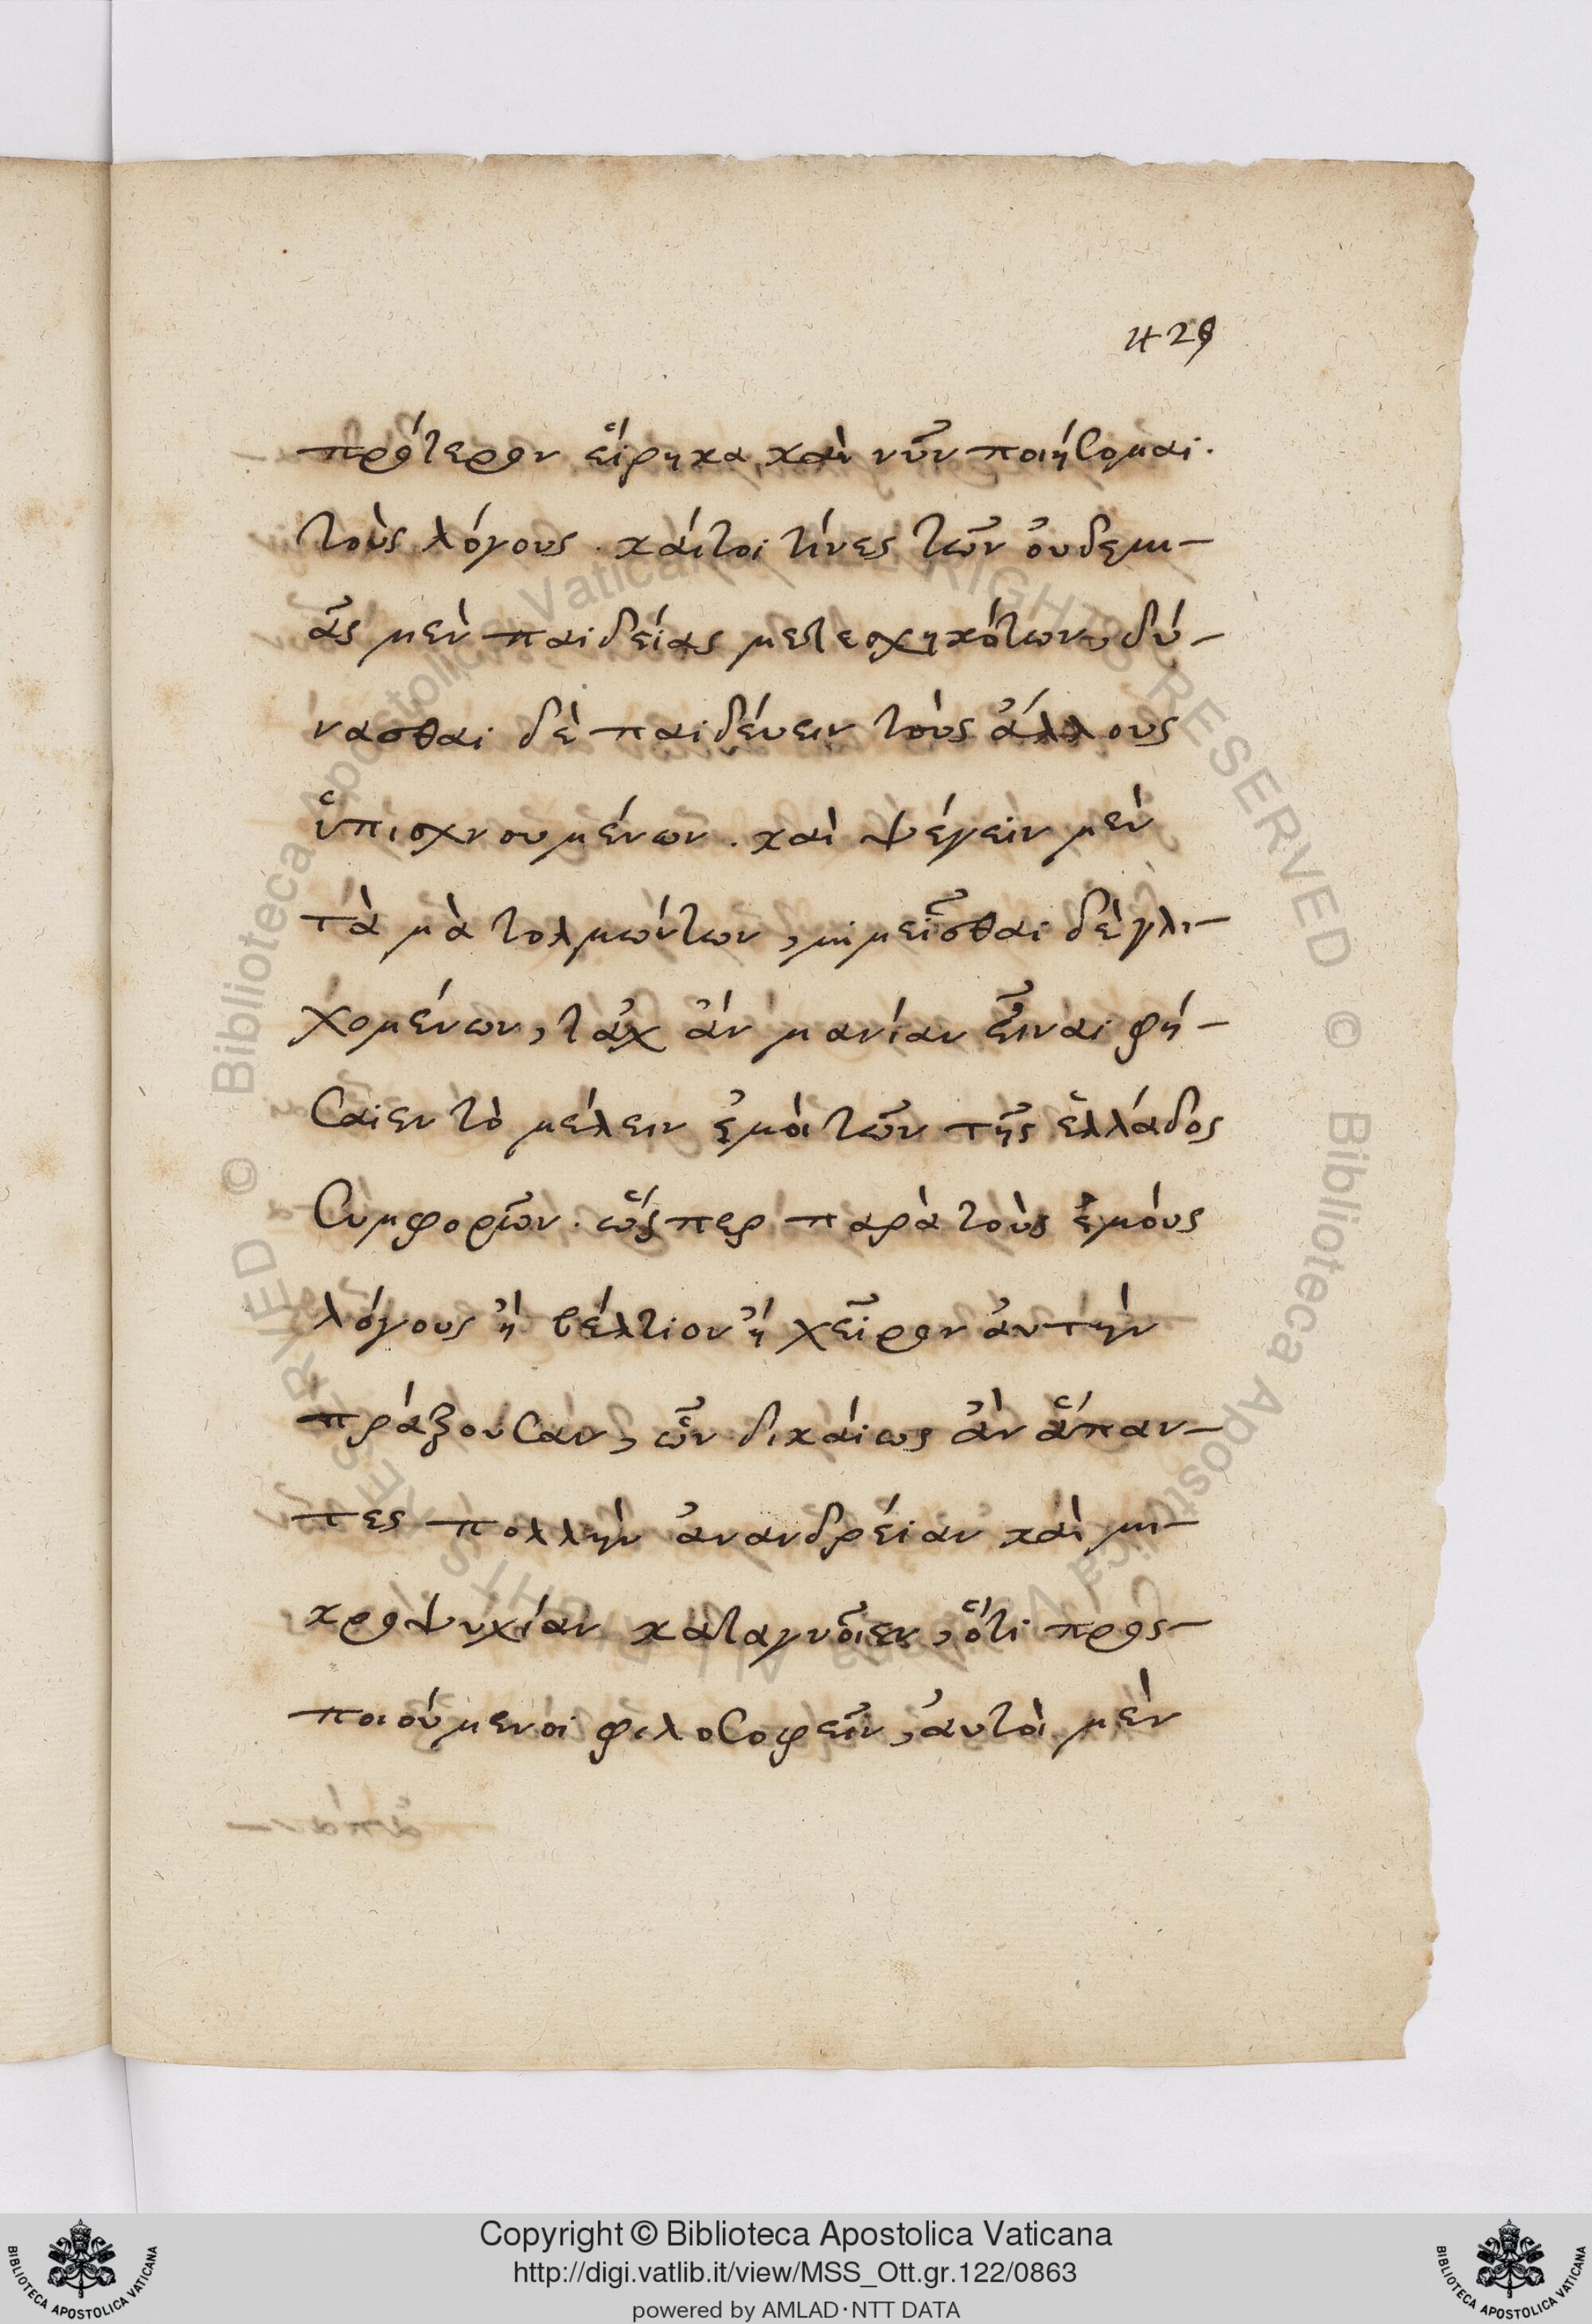 429
πρότερον εἴρηκα, καὶ νῦν ποιήσομαι.
τοὺς λόγους. καίτοι τίνες τῶν οὐδεμι-
ᾶς μὲν παιδείας μετεσχηκότων, δύ-
νασθαι δὲ παιδεύειν τοὺς ἄλλους
ὑπισχνουμένων. καὶ ψέγειν μὲν
τὰ μὰ τολμώντων, μιμεῖσθαι δὲ γλι-
χομένων, τάχ ἂν μανίαν εἶναι φή-
σαιεν τὸ μέλειν ἐμοὶ τῶν τῆς ἑλλάδος
συμφορῶν. ὥσπερ παρὰ τοὺς ἐμοὺς
λόγους ἢ βέλτιον ἢ χεῖρον αὐτὴν
πράξουσαν, ὧν δικαίως ἂν ἅπαν-
τες πολλὴν ἀνανδρείαν καὶ μι-
κροψυχίαν καταγνοῖεν, ὅτι προς-
ποιούμενοι φιλοσοφεῖν, αὐτοὶ μὲν
Copyright © Biblioteca Apostolica Vaticana
http://digi.vatlib.it/view/MSS_Ott.gr.122/0863
powered by AMLAD·NTT DATA
BIBLIOTECA APOSTOLICA VATICANA
BIBLIOTECA APOSTOLICA VATICANA
© Biblioteca Apostolica Vaticana ALL RIGHTS RESERVED © Biblioteca Apostolica Vaticana ALL RIGHTS RESERVED